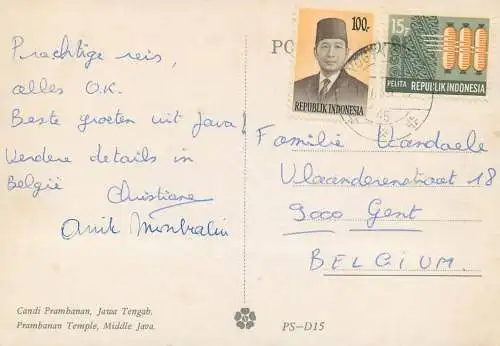 Prachtige reis,
alles O.K.
Beste groeten uit Java!
Verdere details in
België
Christiane
Anik
Candi Prambanan, Jawa Tengah.
Prambanan Temple, Middle Java.
PS-D15
PO
100,-
REPUBLIK INDONESIA
15,-
PELITA REPUBLIK INDONESIA
Familie Vandaele
Vlaanderenstraat 18
9000 Gent
BELGIUM.